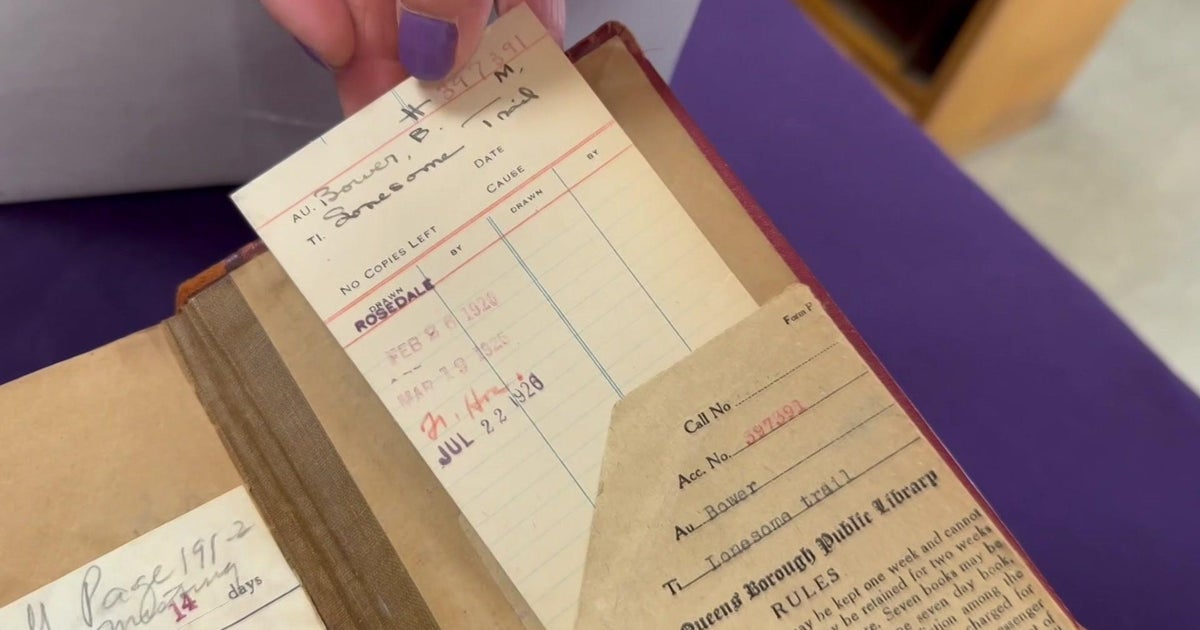 H 397391
AU. Bower, B. M.
TI. Lonesome Trail
NO COPIES LEFT
DATE
CAUSE
DRAWN BY
DRAWN BY
ROSEDALE
FEB 26 1926
MAR 19 1926
JUL 22 1926
Page 191-2
missing
14 days
Form P
Call No
Acc. No. 397391
Au Bower
Ti Lonesome trail
Queens Borough Public Library
RULES
may be kept one week and cannot
be retained for two weeks
Seven books may be
seven day book,
among the
charged for
of